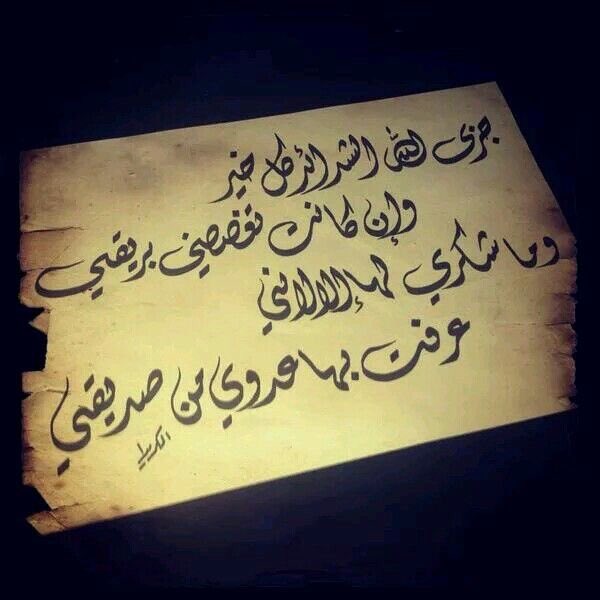 جزى الله الشدائد كل خير
وإن كانت تغصصني بريقي
وما شكري لها إلا لأني
عرفت بها عدوي من صديقي